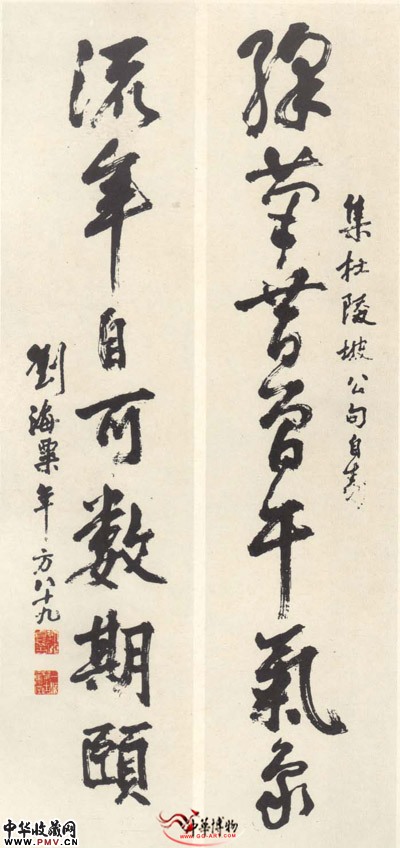 綵筆昔曾干氣象
集杜陵坡公句自壽
流年自可數期頤
劉海粟年方八十九
中华收藏网
WWW.PMV.CN
中華博物
WWW.GG-ART.COM